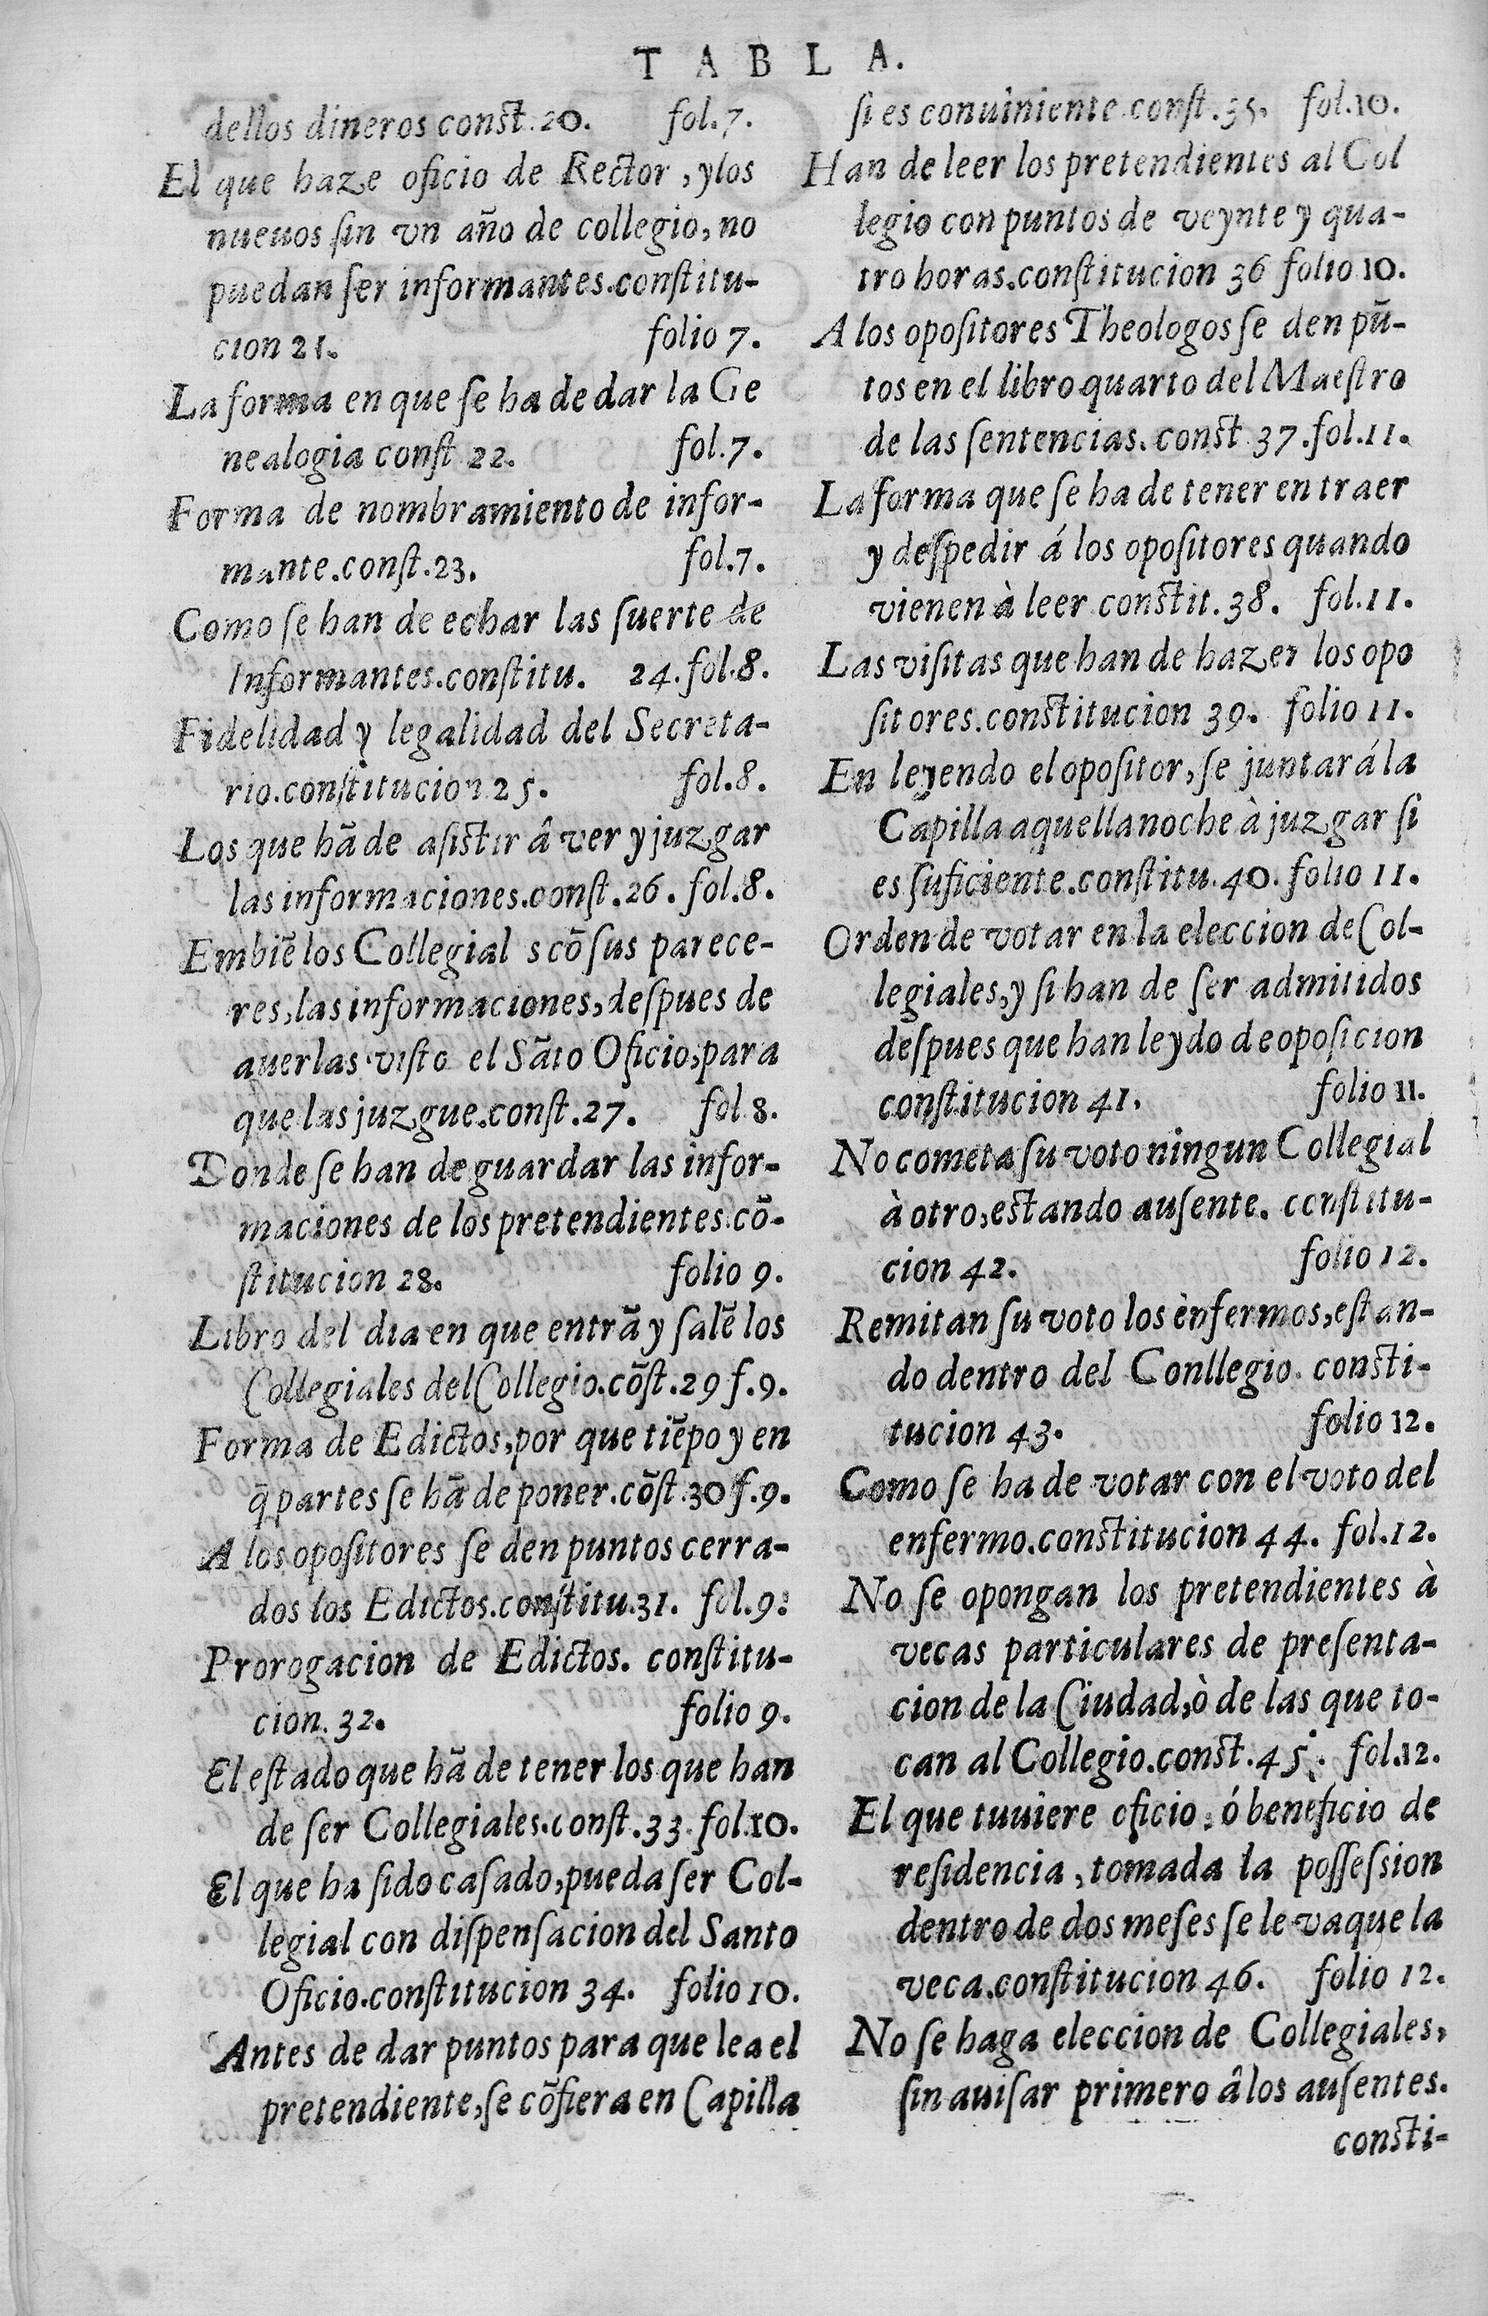 TABLA.
dellos dineros const. 20. fol. 7.
El que haze oficio de Rector, y los
nueuos sin vn año de collegio, no
puedan ser informantes. constitu-
cion 21. folio 7.
La forma en que se ha de dar la Ge
nealogia const 22. fol. 7.
Forma de nombramiento de infor-
mante. const. 23. fol. 7.
Como se han de echar las suerte de
Informantes. constitu. 24. fol. 8.
Fidelidad y legalidad del Secreta-
rio. constitucion 25. fol. 8.
Los que hã de asistir â ver y juzgar
las informaciones. const. 26. fol. 8.
Embiẽ los Collegial s cõ sus parece-
res, las informaciones, despues de
auerlas visto el Sãto Oficio, para
que las juzgue. const. 27. fol 8.
Donde se han de guardar las infor-
maciones de los pretendientes. cõ-
stitucion 28. folio 9.
Libro del dia en que entrã y salẽ los
Collegiales del Collegio. cõst. 29 f. 9.
Forma de Edictos, por que tiẽpo y en
q̃ partes se hã de poner. cõst. 30 f. 9.
A los opositores se den puntos cerra-
dos los Edictos. constitu. 31. fol. 9.
Prorogacion de Edictos. constitu-
cion. 32. folio 9.
El estado que hã de tener los que han
de ser Collegiales. const. 33. fol. 10.
El que ha sido casado, pueda ser Col-
legial con dispensacion del Santo
Oficio. constitucion 34. folio 10.
Antes de dar puntos para que lea el
pretendiente, se cõfiera en Capilla
si es conuiniente. const. 35. fol. 10.
Han de leer los pretendientes al Col
legio con puntos de veynte y qua-
tro horas. constitucion 36 folio 10.
A los opositores Theologos se den pũ-
tos en el libro quarto del Maestro
de las sentencias. const. 37. fol. 11.
La forma que se ha de tener en traer
y despedir á los opositores quando
vienen à leer constit. 38. fol. 11.
Las visitas que han de hazer los opo
sitores. constitucion 39. folio 11.
En leyendo el opositor, se juntará la
Capilla aquella noche à juzgar si
es suficiente. constitu. 40. folio 11.
Orden de votar en la eleccion de Col-
legiales, y si han de ser admitidos
despues que han leydo de oposicion
constitucion 41. folio 11.
No cometa su voto ningun Collegial
à otro, estando ausente. constitu-
cion 42. folio 12.
Remitan su voto los ènfermos, estan-
do dentro del Conllegio. consti-
tucion 43. folio 12.
Como se ha de votar con el voto del
enfermo. constitucion 44. fol. 12.
No se opongan los pretendientes à
vecas particulares de presenta-
cion de la Ciudad, ò de las que to-
can al Collegio. const. 45. fol. 12.
El que tuuiere oficio, ó beneficio de
residencia, tomada la possession
dentro de dos meses se le vaque la
veca. constitucion 46. folio 12.
No se haga eleccion de Collegiales,
sin auisar primero â los ausentes.
consti-